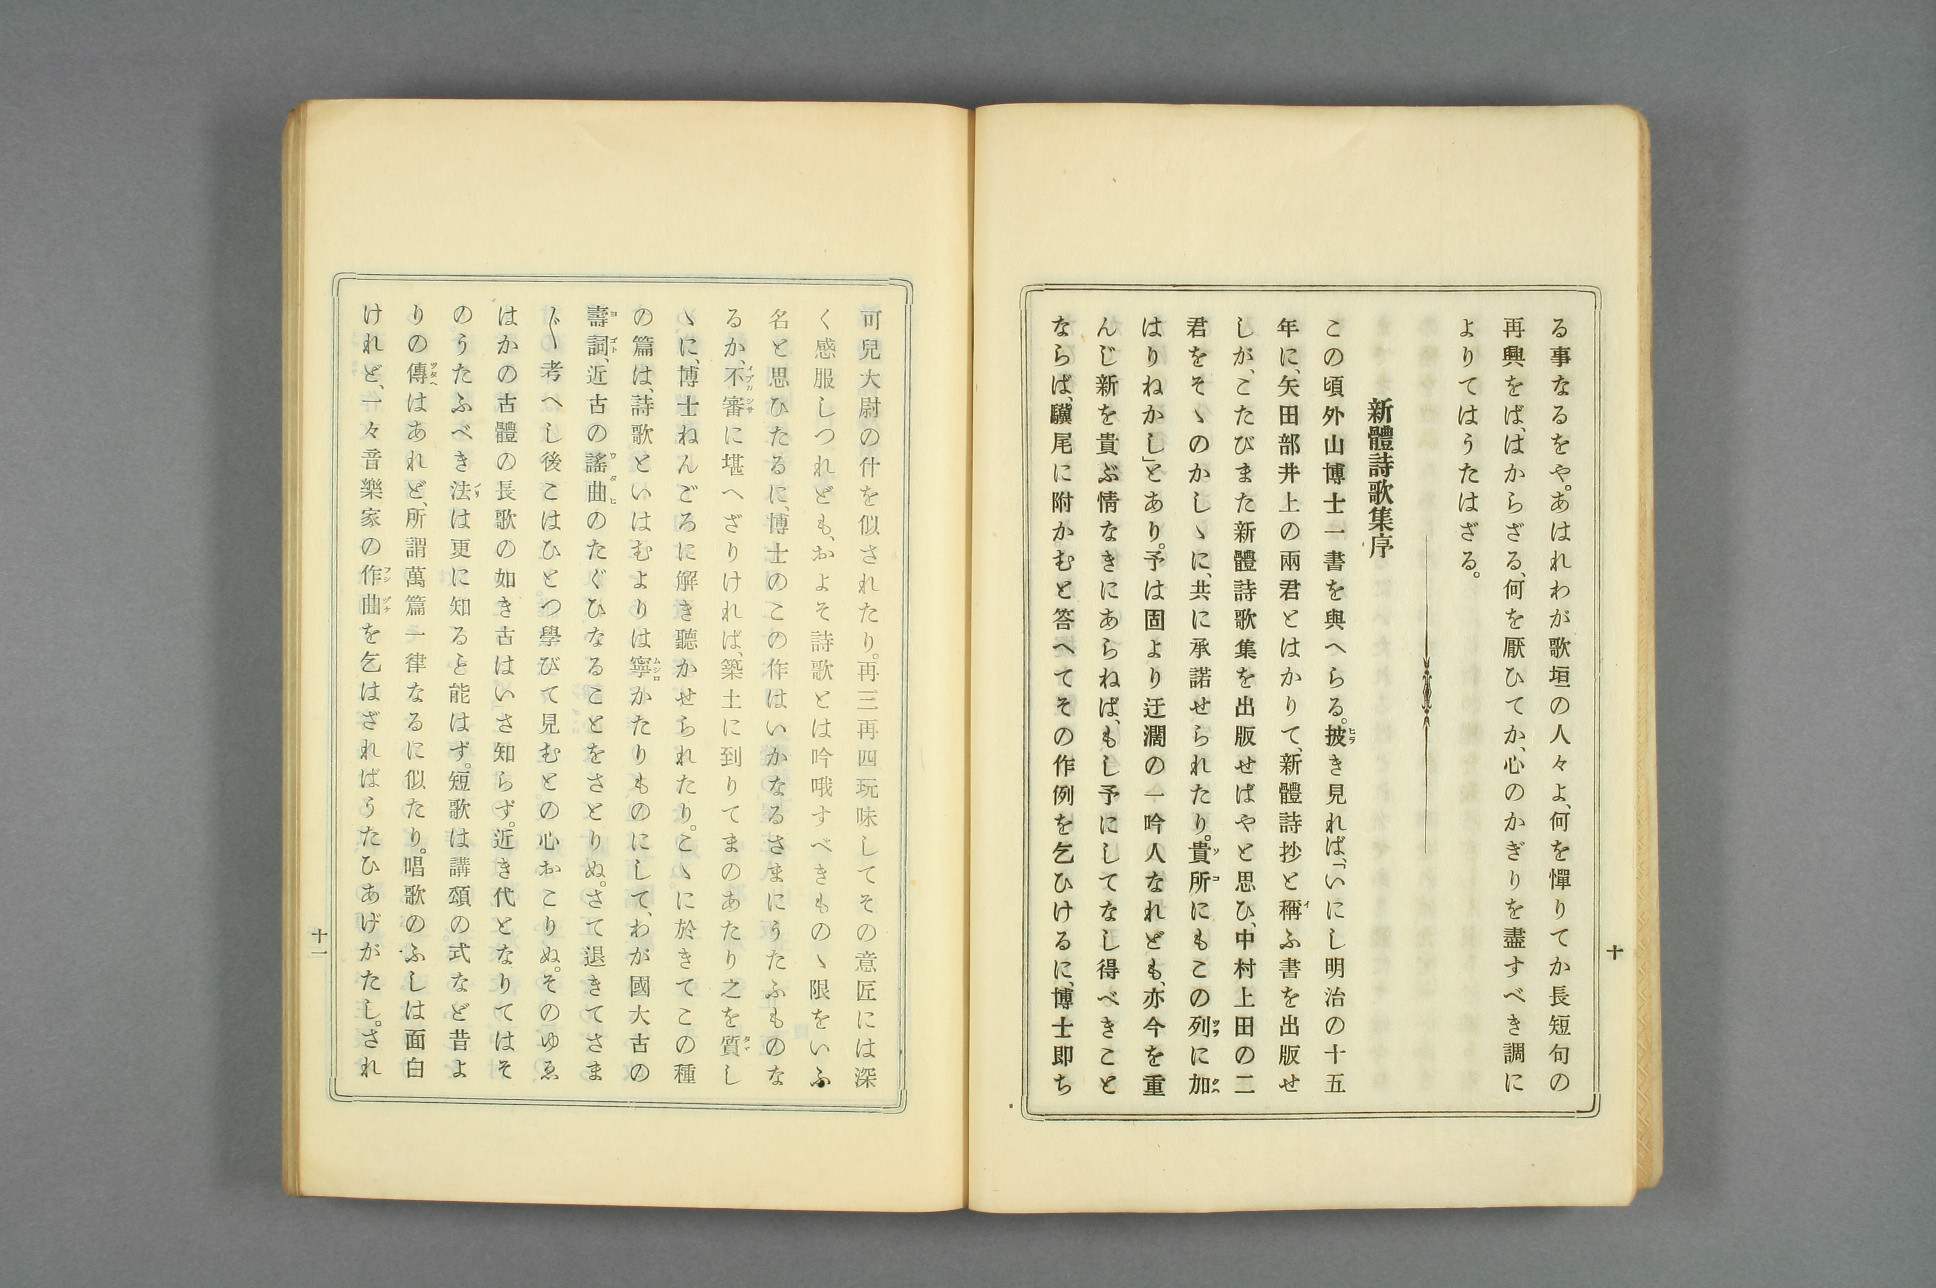 る事なるをや。あはれわが歌垣の人々よ、何を憚りてか長短句の
再興をば、はからざる、何を厭ひてか、心のかぎりを盡すべき調に
よりてはうたはざる。
新體詩歌集序
この頃外山博士一書を與へらる。披き見れば、「いにし明治の十五
年に、矢田部井上の兩君とはかりて、新體詩抄と稱ふ書を出版せ
しが、こたびまた新體詩歌集を出版せばやと思ひ、中村上田の二
君をそゝのかしゝに、共に承諾せられたり。貴所にもこの列に加
はりねかし」とあり。予は固より迂濶の一吟人なれども、亦今を重
んじ新を貴ぶ情なきにあらねば、もし予にしてなし得べきこと
ならば、驥尾に附かむと答へてその作例を乞ひけるに、博士即ち
十
可兒大尉の什を似されたり。再三再四玩味してその意匠には深
く感服しつれども、およそ詩歌とは吟哦すべきものゝ限をいふ
名と思ひたるに、博士のこの作はいかなるさまにうたふものな
るか、不審に堪へざりければ、築土に到りてまのあたり之を質し
ゝに、博士ねんごろに解き聽かせられたり。こゝに於きてこの種
の篇は、詩歌といはむよりは寧かたりものにして、わが國大古の
壽詞、近古の謠曲のたぐひなることをさとりぬ。さて退きてさま
〴〵考へし後こはひとつ學びて見むとの心おこりぬ。そのゆゑ
はかの古體の長歌の如き古はいさ知らず。近き代となりてはそ
のうたふべき法は更に知ると能はず。短歌は講頌の式など昔よ
りの傳はあれど、所謂萬篇一律なるに似たり。唱歌のふしは面白
けれど、一々音樂家の作曲を乞はざればうたひあげがたし。され
十一